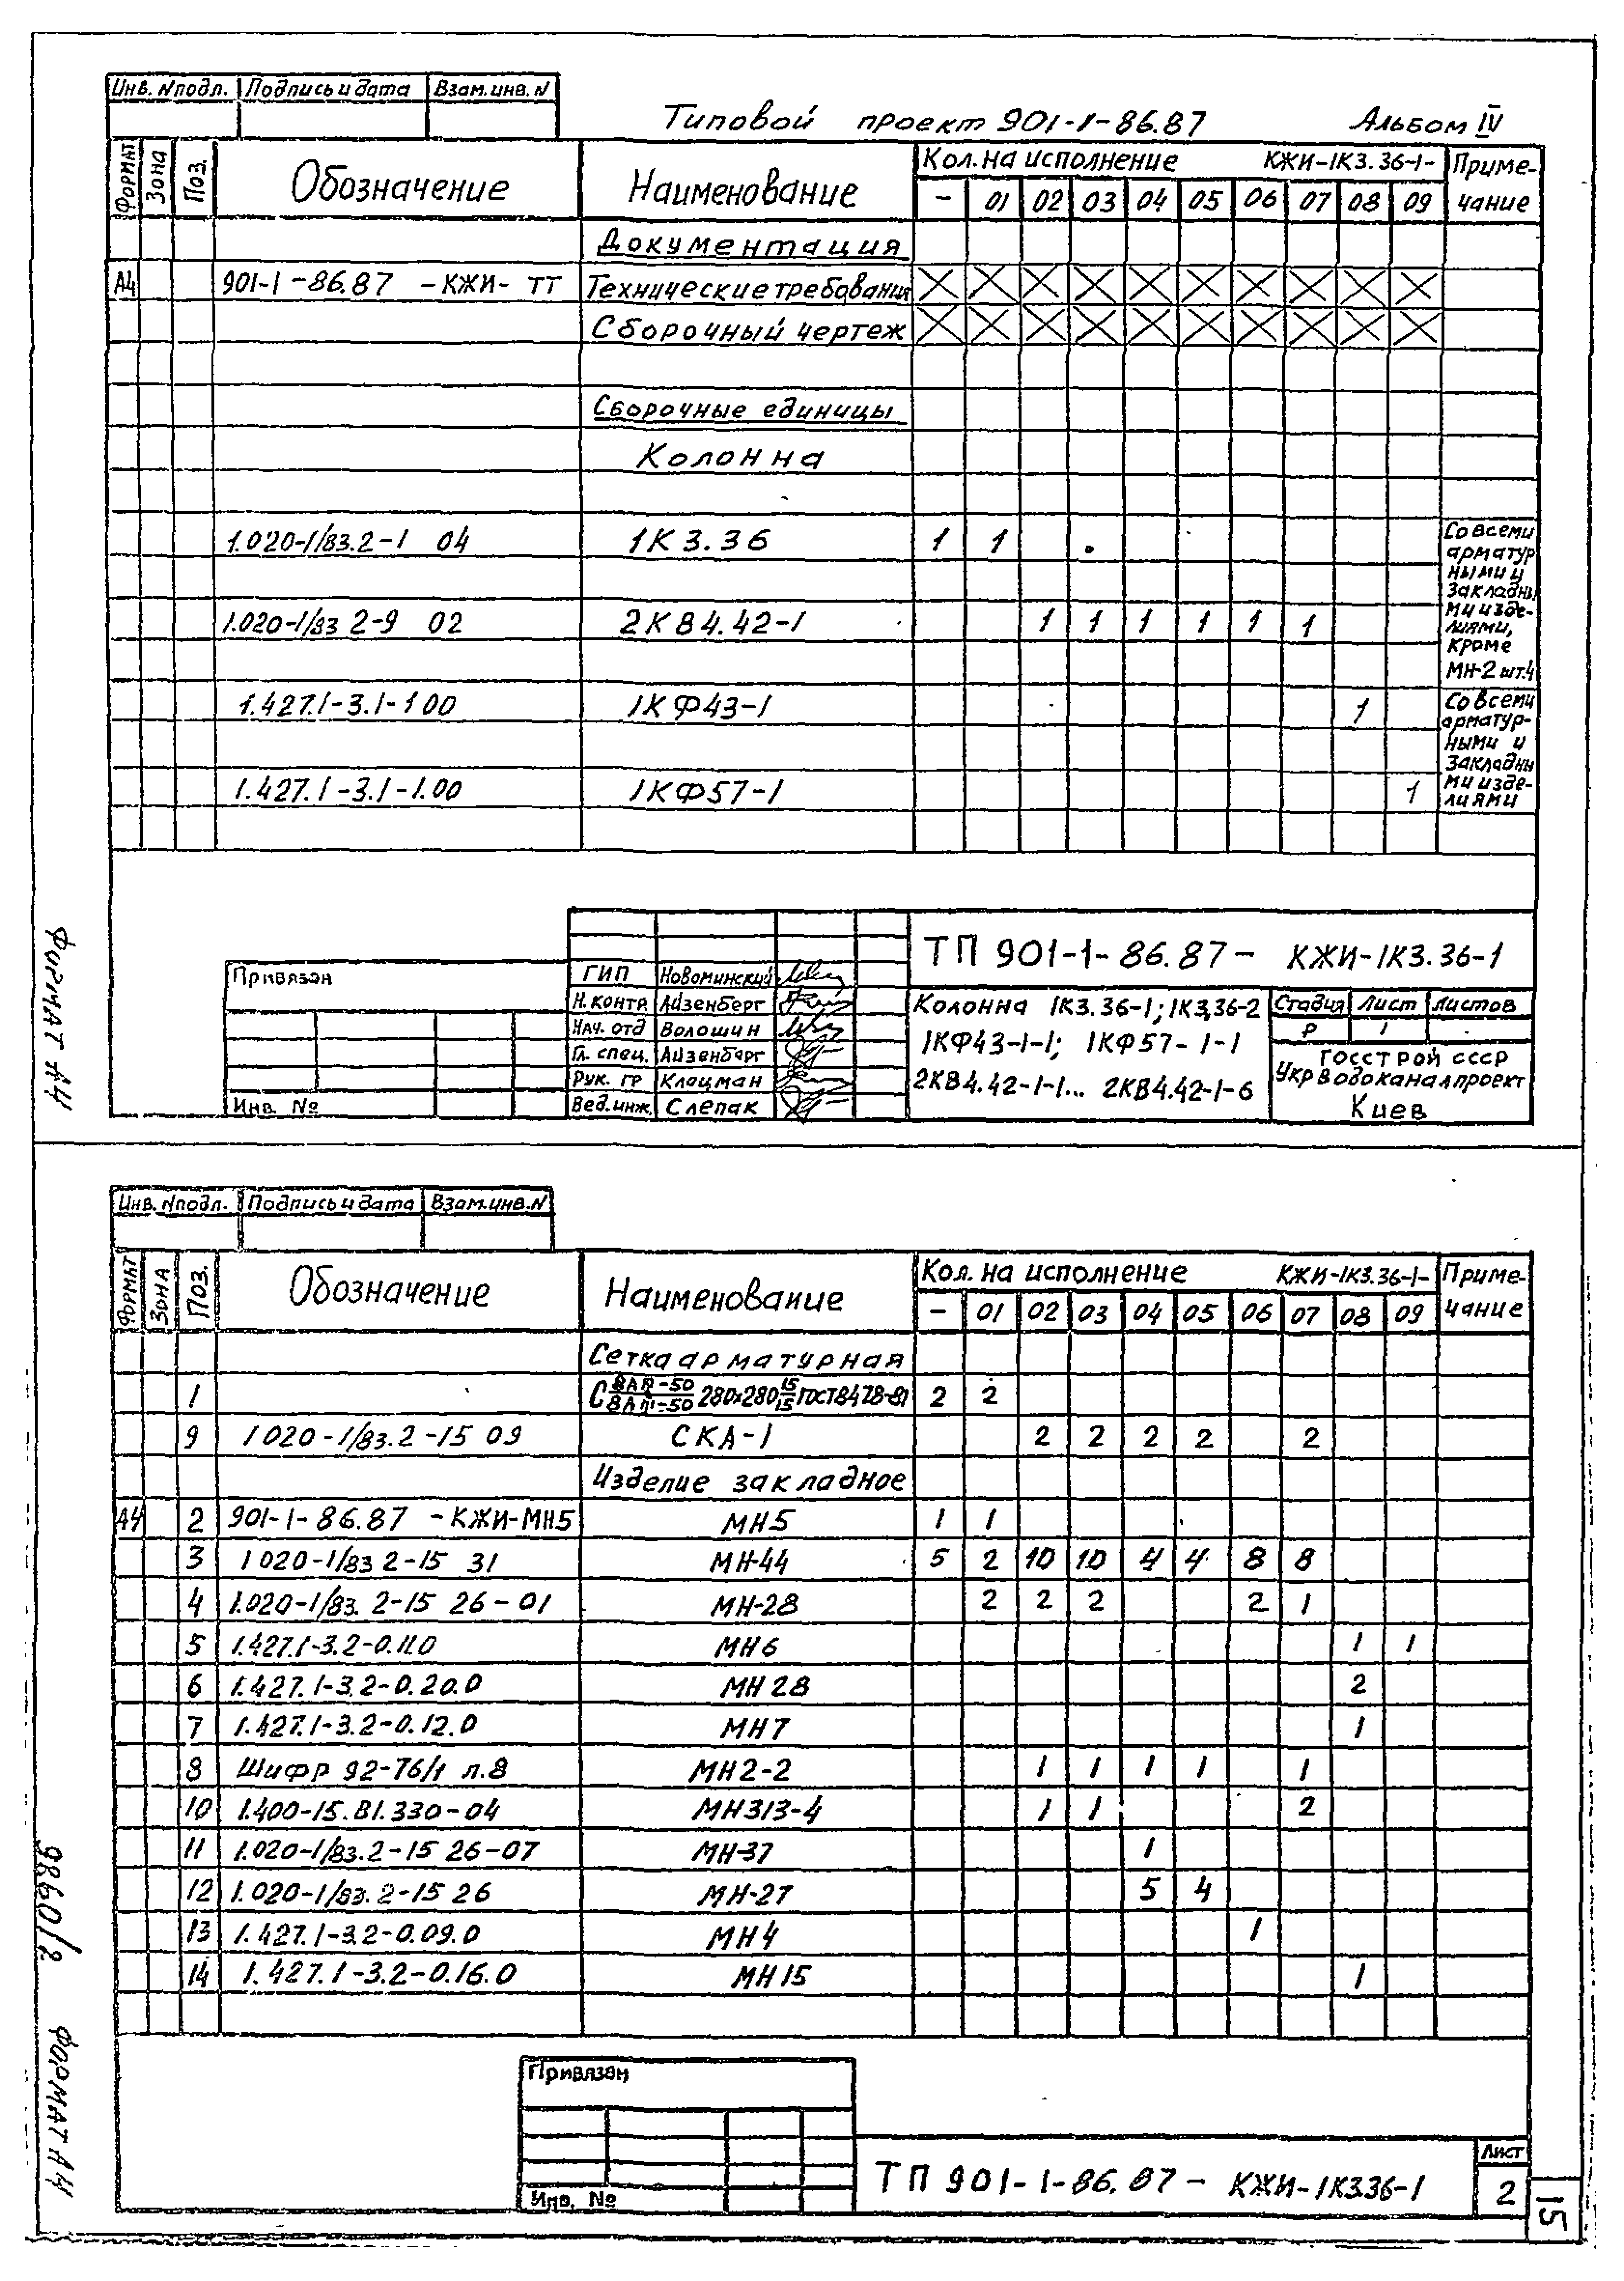 Инв. №подл. Подпись и дата Взам. инв. N
Типовой проект 901-1-86.87 Альбом IV
Формат Зона Поз. Обозначение Наименование Кол. на исполнение КЖИ-1К3.36-1- Приме-
чание
– 01 02 03 04 05 06 07 08 09
Документация
А4 901-1-86.87 -КЖИ- ТТ Технические требования
Сборочный чертеж
Сборочные единицы
Колонна
1.020-1/83.2-1 04 1К3.36 1 1
Со всеми
арматур
ными и
закладны
ми изде-
лиями,
кроме
МН-2 шт.4
1.020-1/83 2-9 02 2КВ4.42-1 1 1 1 1 1 1
1.427.1-3.1-1 00 1КФ43-1 1
Со всеми
арматур-
ными и
закладны
ми изде-
лиями
1.427.1-3.1-1.00 1КФ57-1 1
Формат А4
Привязан
Инв. №
ГИП Новоминский
Н.контр Айзенберг
Нач. отд Волошин
Гл. спец. Айзенберг
Рук. гр Клацман
Вед.инж. Слепак
ТП 901-1-86.87- КЖИ-1К3.36-1
Колонна 1К3.36-1; 1К3,36-2
1КФ43-1-1; 1КФ57-1-1
2КВ4.42-1-1... 2КВ4.42-1-6
Стадия Лист Листов
Р 1
Госстрой СССР
Укрводоканалпроект
Киев
Инв. №подл. Подпись и дата Взам.инв.N
Формат Зона Поз. Обозначение Наименование Кол. на исполнение КЖИ-1К3.36-1- Приме-
чание
– 01 02 03 04 05 06 07 08 09
Сетка арматурная
1 С 8АIII-50/8АIII-50 280х280 15/15 ГОСТ8478-81 2 2
9 1 020-1/83.2-15 09 СКА-1 2 2 2 2 2
Изделие закладное
А4 2 901-1-86.87 -КЖИ-МН5 МН5 1 1
3 1 020-1/83 2-15 31 МН-44 5 2 10 10 4 4 8 8
4 1.020-1/83. 2-15 26-01 МН-28 2 2 2 2 1
5 1.427.1-3.2-0.11.0 МН6 1 1
6 1.427.1-3.2-0.20.0 МН 28 2
7 1.427.1-3.2-0.12.0 МН7 1
8 Шифр 92-76/1 л.8 МН2-2 1 1 1 1 1
10 1.400-15.В1.330-04 МН313-4 1 1 2
11 1.020-1/83.2-15 26-07 МН-37 1
12 1.020-1/83.2-15 26 МН-27 5 4
13 1.427.1-3.2-0.09.0 МН4 1
14 1.427.1-3.2-0.16.0 МН15 1
9860/2
Формат А4
Привязан
Инв. №
ТП 901-1-86.87- КЖИ-1К3.36-1
Лист
2
15